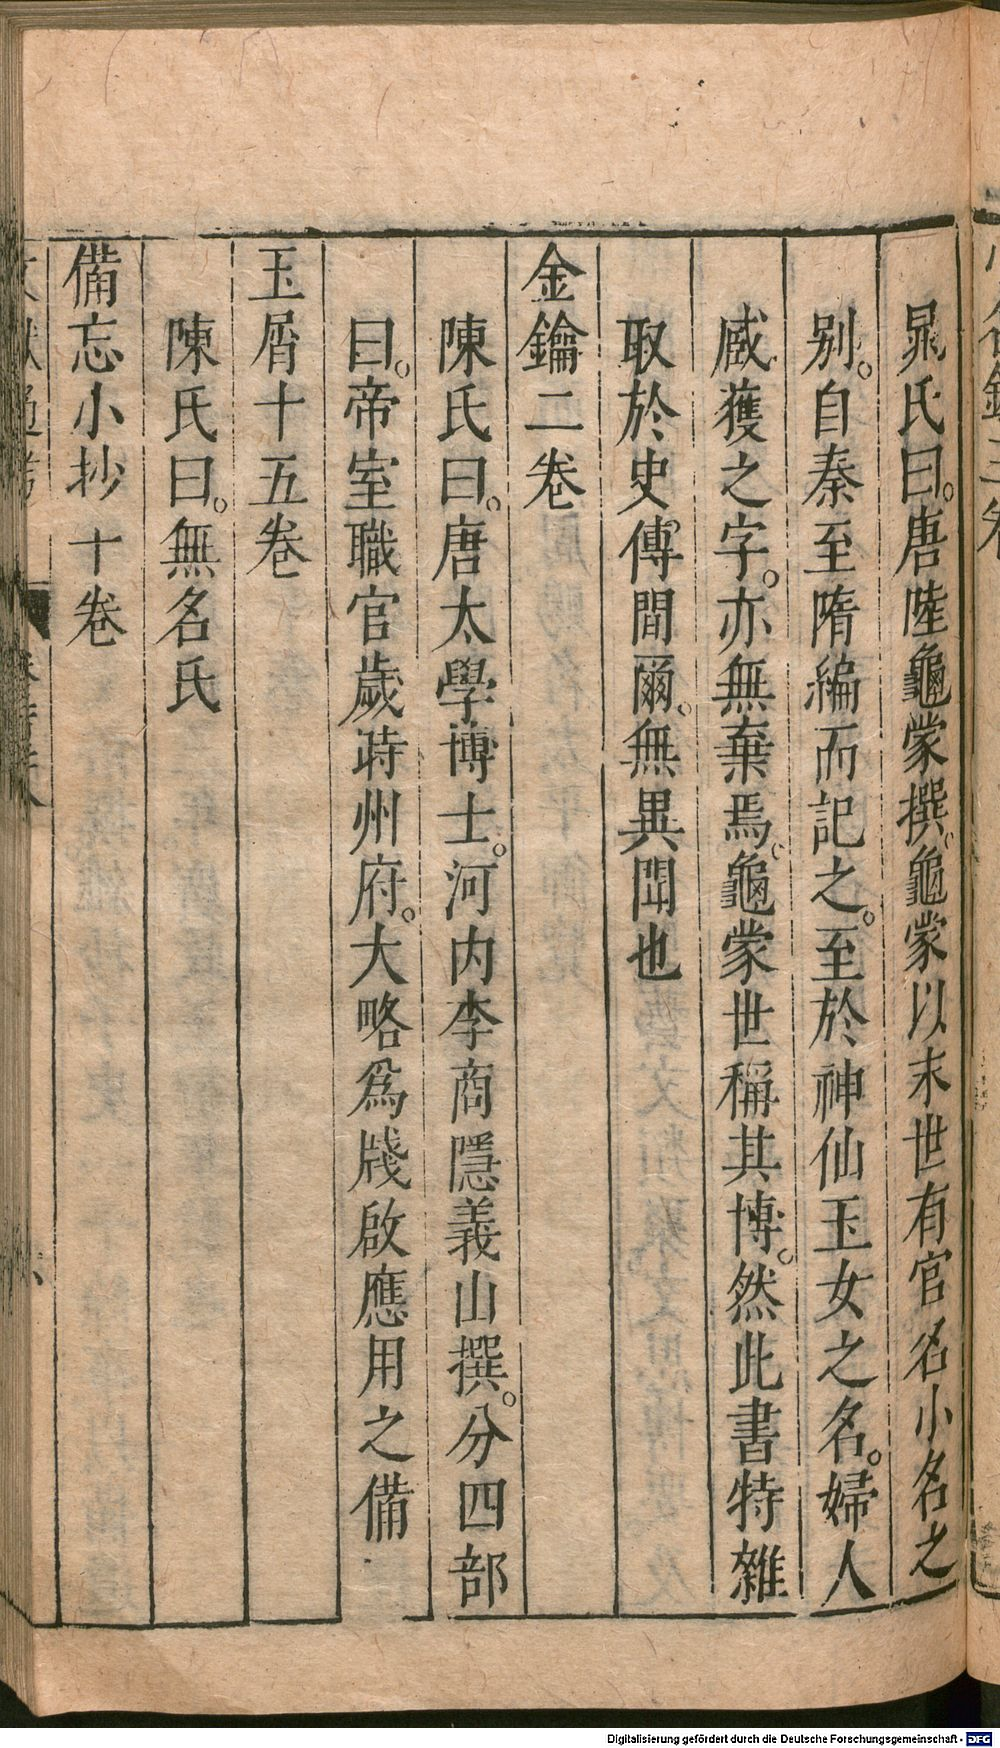 晁氏曰。唐陸龜蒙撰。龜蒙以末世有官名小名之
别。自秦至隋編而記之。至於神仙玉女之名。婦人
臧獲之字。亦無棄焉。龜蒙世稱其博。然此書特雜
取於史傳間爾。無異聞也
金鑰二卷
陳氏曰。唐太學博士。河内李商隱義山撰。分四部
曰。帝室職官歲時州府。大略爲牋啟應用之備
玉屑十五卷
陳氏曰。無名氏
備忘小抄十卷
Digitalisierung gefördert durch die Deutsche Forschungsgemeinschaft - DFG